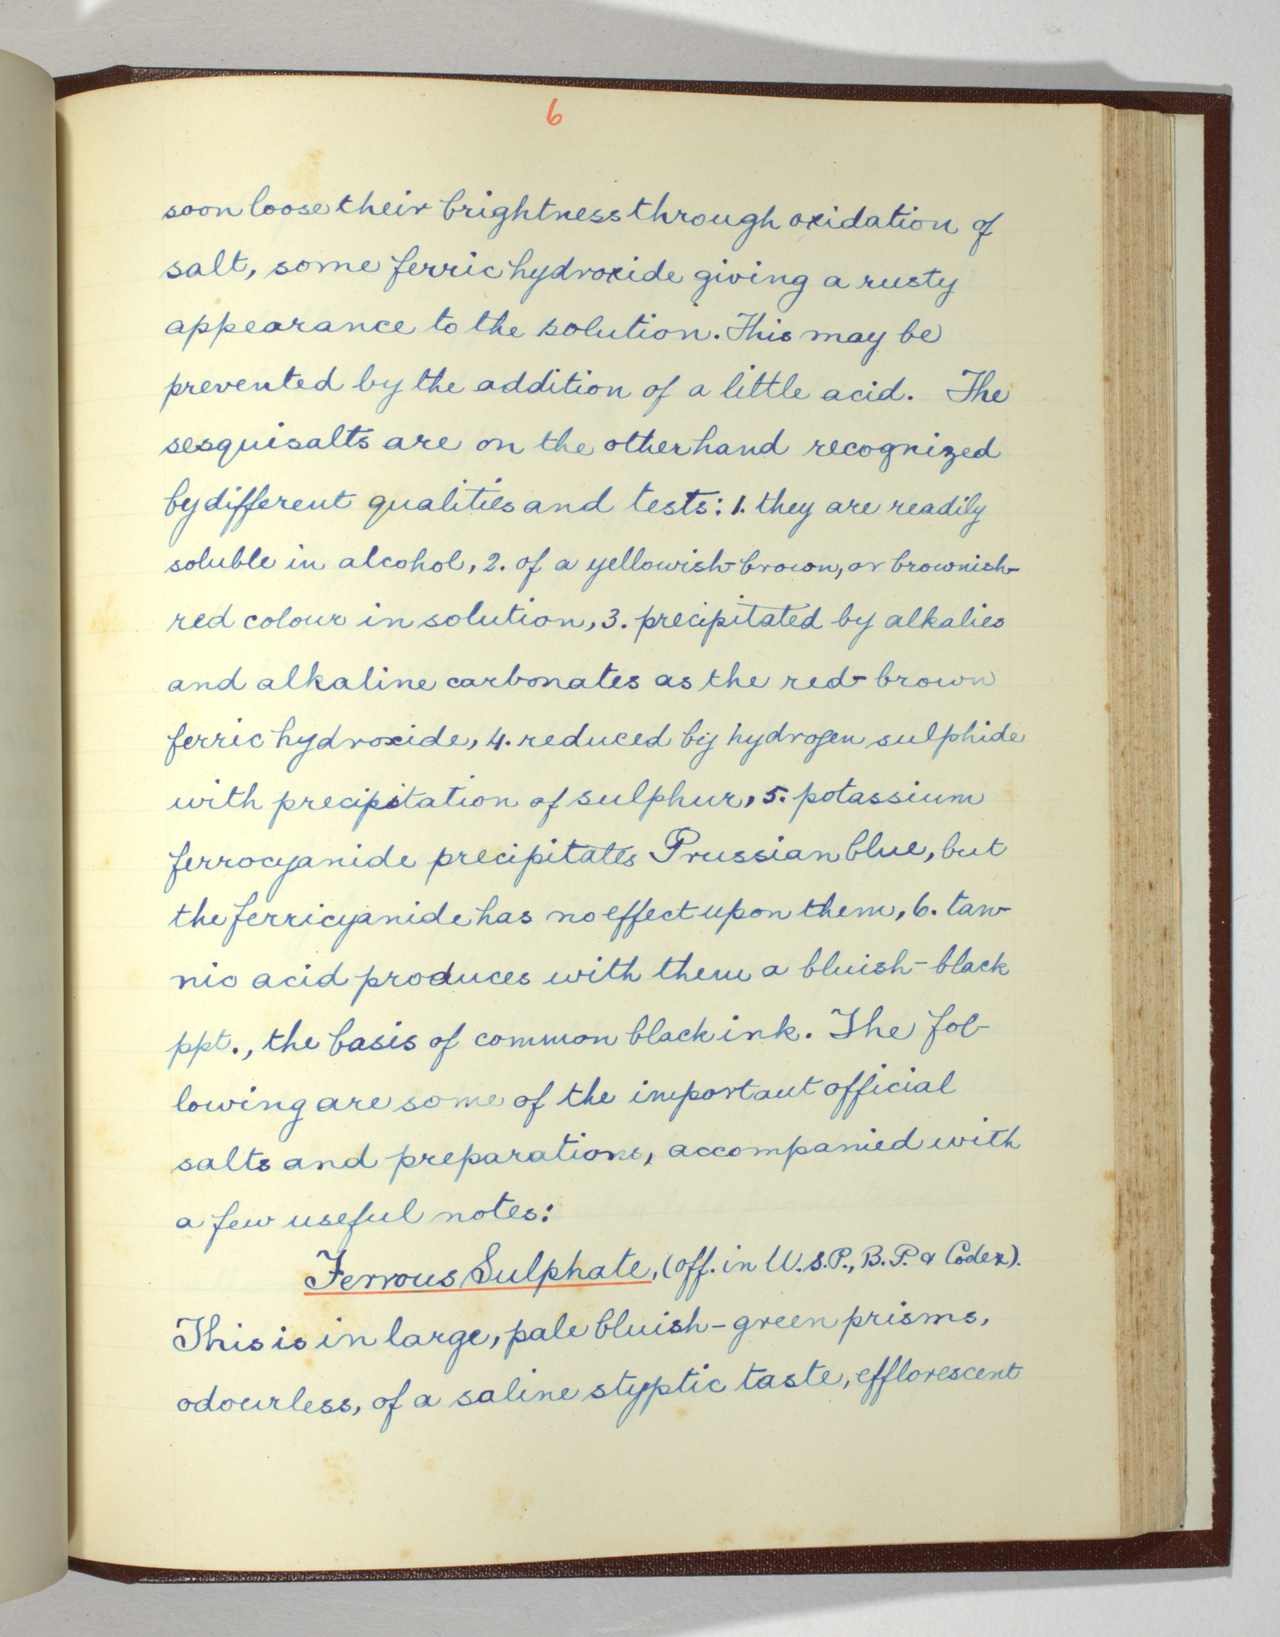 6
soon loose their brightness through oxidation of
salt, some ferric hydroxide giving a rusty
appearance to the solution. This may be
prevented by the addition of a little acid. The
sesquisalts are on the other hand recognized
by different qualities and tests: 1. they are readily
soluble in alcohol, 2. of a yellowish-brown, or brownish-
red colour in solution, 3. precipitated by alkalies
and alkaline carbonates as the red-brown
ferric hydroxide, 4. reduced by hydrogen sulphide
with precipitation of sulphur, 5. potassium
ferrocyanide precipitates Prussian blue, but
the ferricyanide has no effect upon them, 6. tan-
nic acid produces with them a bluish-black
ppt., the basis of common black ink. The fol-
lowing are some of the important official
salts and preparations, accompanied with
a few useful notes:
Ferrous Sulphate, (off. in U.S.P., B.P. & Codex).
This is in large, pale bluish-green prisms,
odourless, of a saline styptic taste, efflorescent